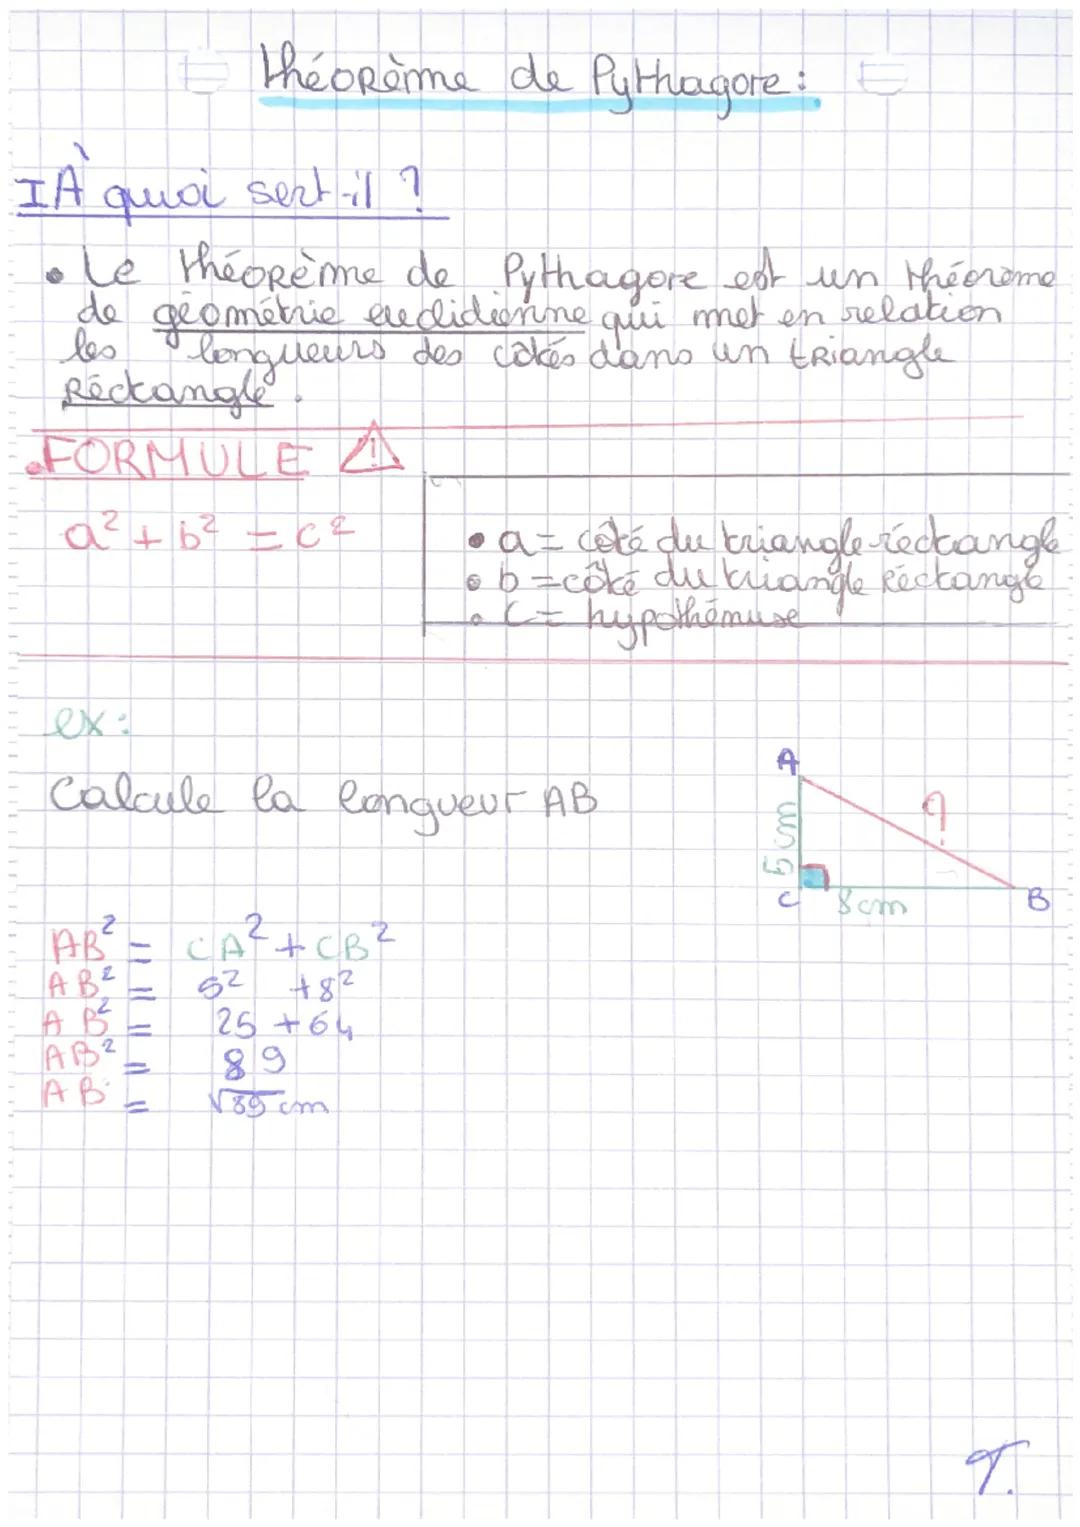 théorème de Pythagore :
I À quoi sert-il ?
• Le théorème de Pythagore est un théorème
de géométrie euclidienne qui met en relation
les longueurs des côtés dans un triangle
réctangle.
• FORMULE ⚠
a² + b² = c²
• a = côté du triangle réctangle
• b = côté du triangle réctangle
• C = hypothémuse
ex :
Calcule la longueur AB
A
5 cm
?
C
8 cm
B
AB² = CA² + CB²
AB² = 5² + 8²
AB² = 25 + 64
AB² = 89
AB = √89 cm
T.